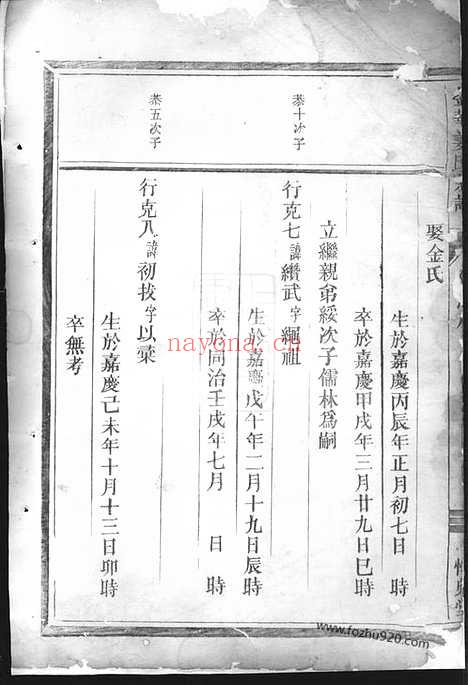 娶金氏
生於嘉慶丙辰年正月初七日　時
卒於嘉慶甲戌年三月廿九日巳時
立繼親弟綏次子儒林為嗣
恭十次子
行克七諱纘武字繩祖
生於嘉慶戊午年二月十九日辰時
卒於同治壬戌年七月　日　時
恭五次子
行克八諱初拔字以彙
生於嘉慶己未年十月十三日卯時
卒無考
nayona.cn
www.fozhu920.com